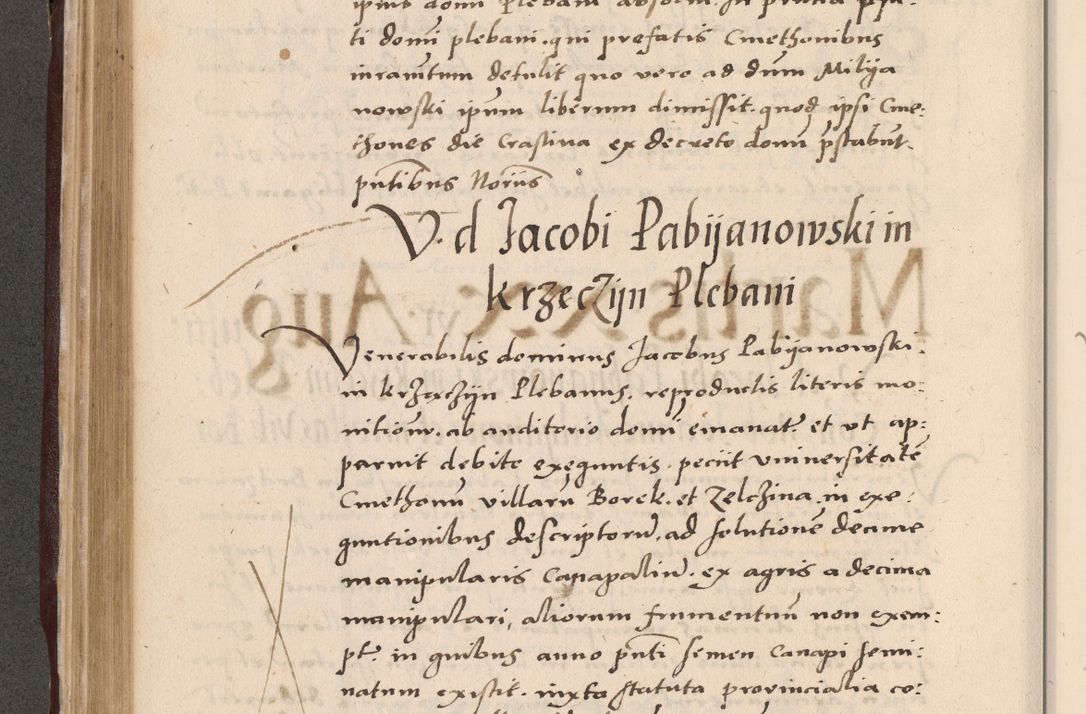 ti domi plebani. qui prefatis Cmethonibus
inrauitum detulit quo vero ad dnm Milya
nowski ipum liberum dimissit. quod ipsi Cme:
thones die Crastina ex decreto domi pstabunt.
pntibus Noriis
V. d Jacobi Pabijanowski in
krzeczijn Plebani
Venerabilis dominus Jacobus Pabijanowski:
in krzeczijn Plebanus. reproductis literis mo:
nitiour. ab auditorio domi emanat. et vt ap:
paruit debite exeguntis. peciit vniuersitate
Cmethonu villaru Borek. et Zelczina in exe:
guntionibus descriptoru. ad solutione decime
manipularis Canapaliu. ex agris a decima
manipulari, aliorum frumentuu non exem:
pt. in quibus anno pnti semen Canapi semi:
natum existit. iuxta statuta prouincialia co: